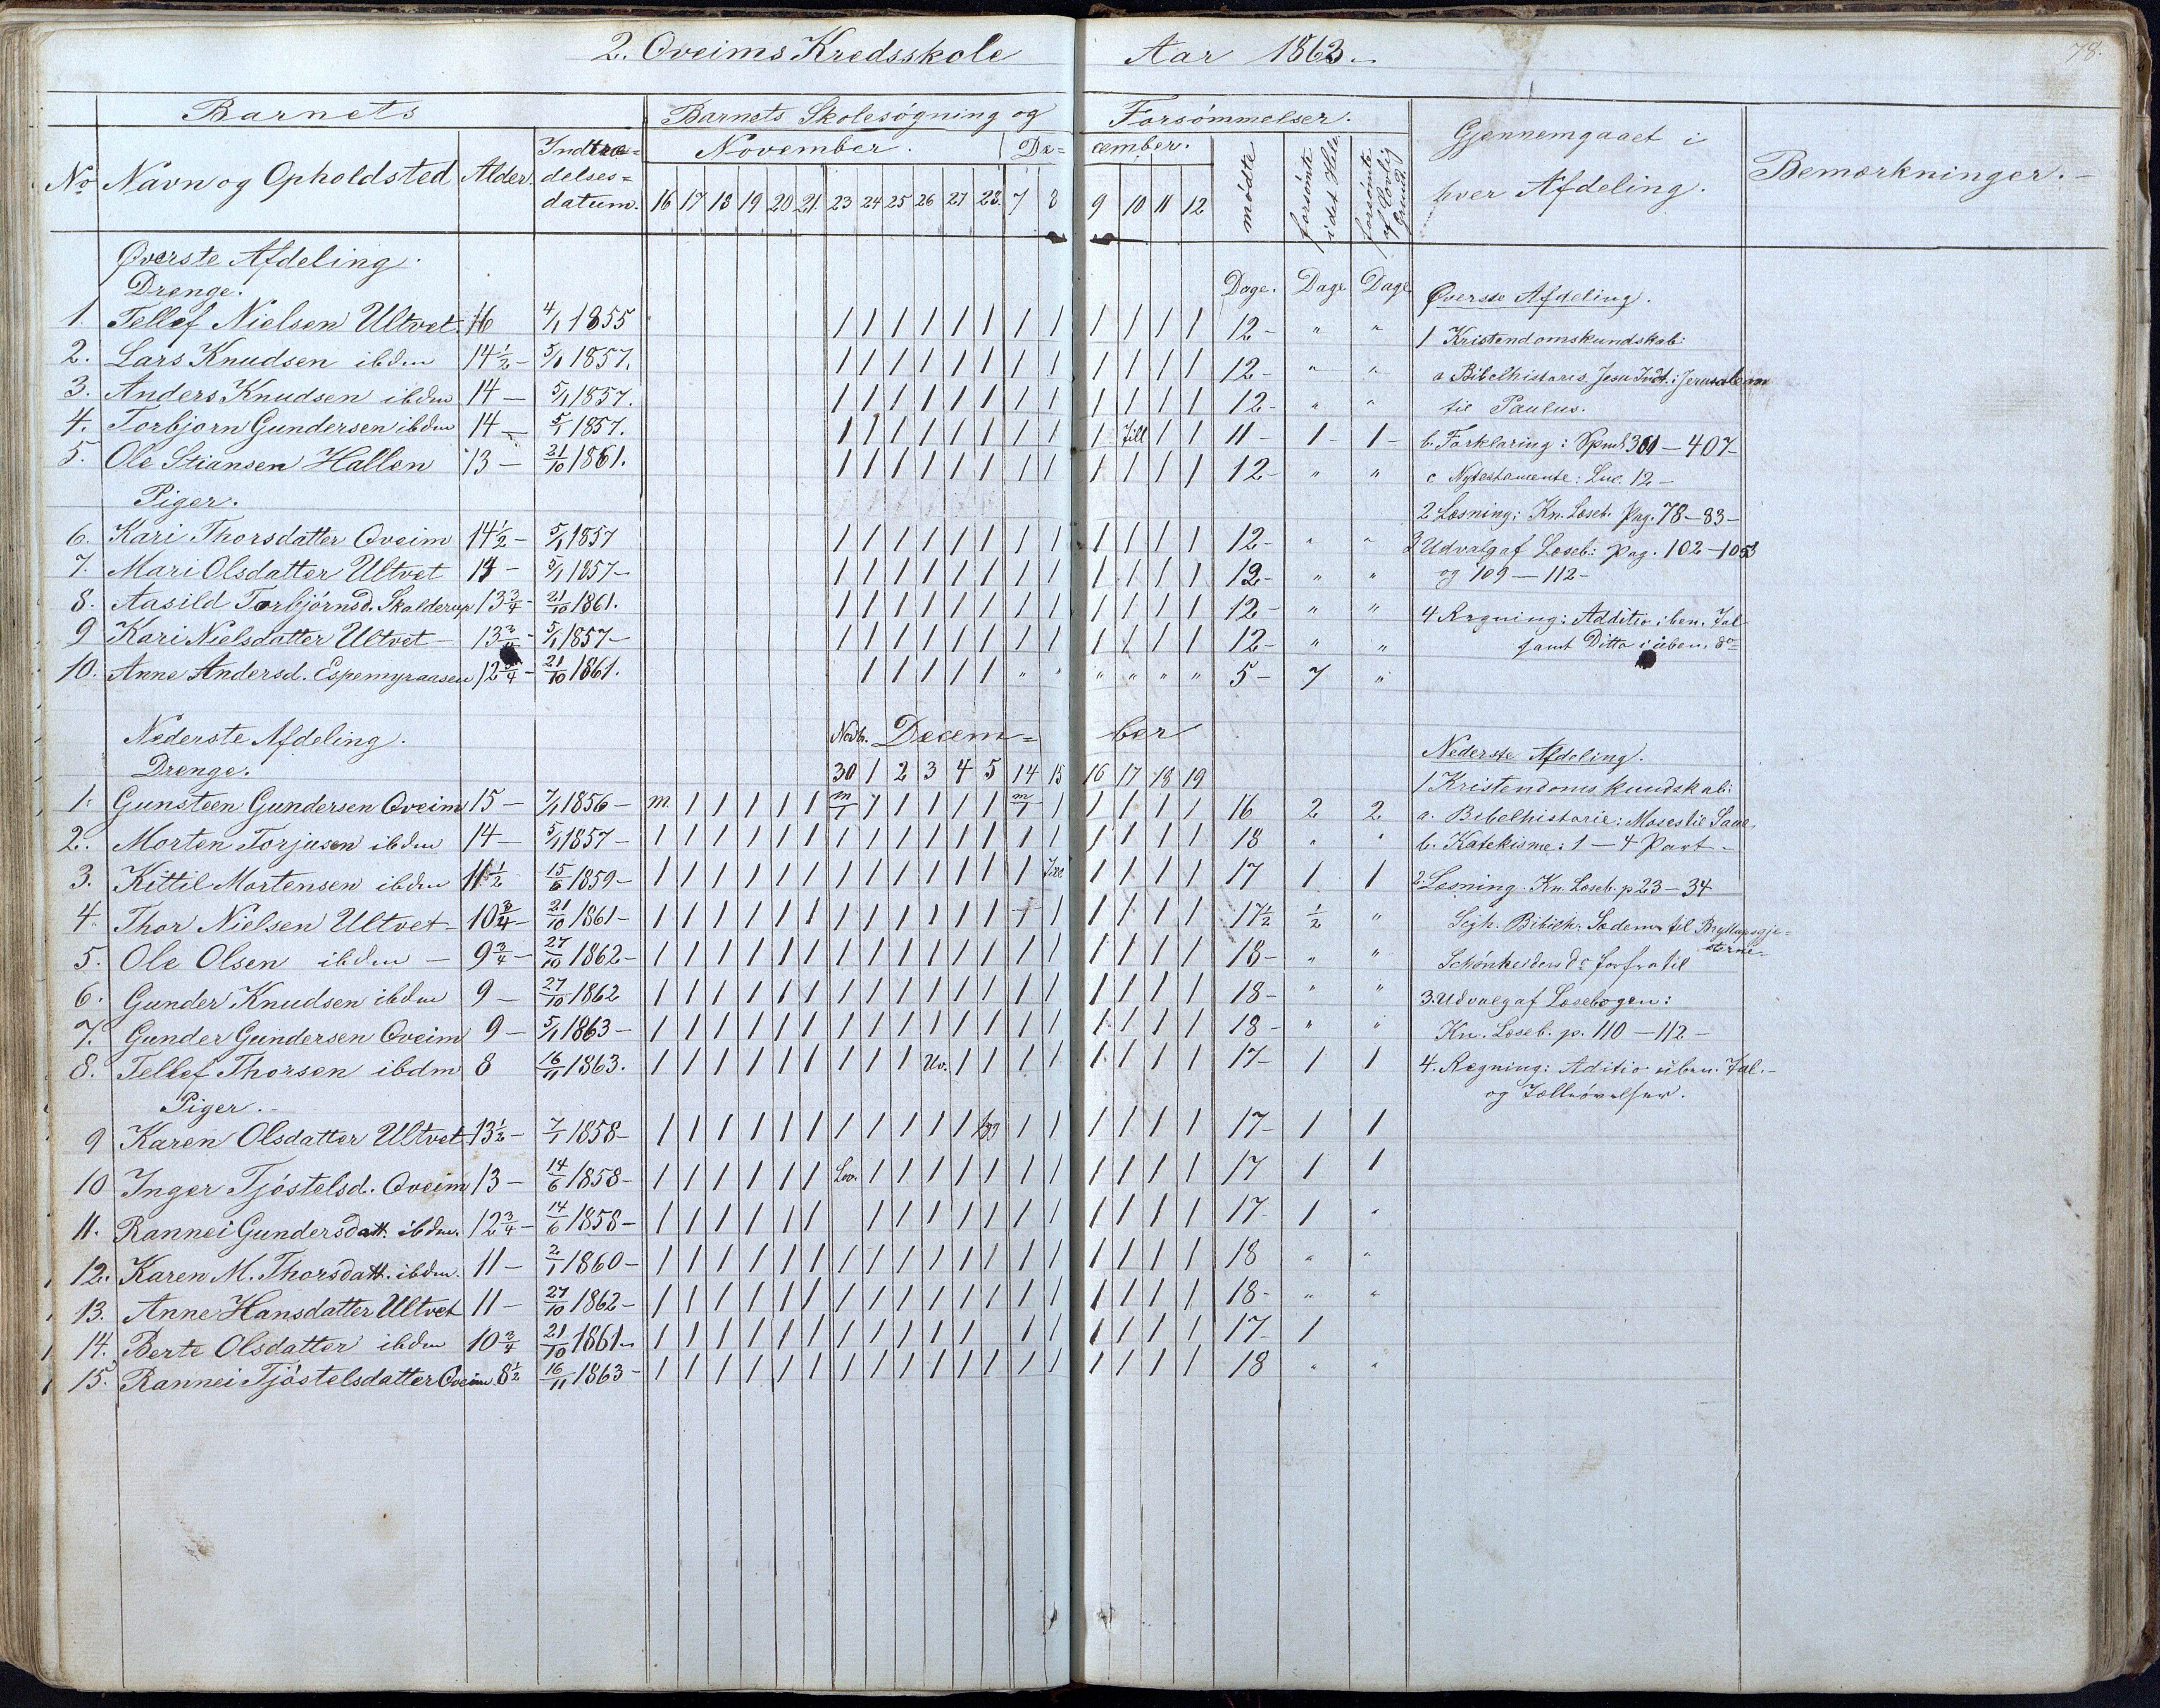 2. Oveims Kredsskole Aar 1863.
78.
Barnets
Barnets Skolesøgning og Forsømmelser.
No Navn og Opholdsted Alder. Indtræ=
delses=
datum.
November. De= cember.
16 17 18 19 20 21 23 24 25 26 27 28. 7 8 9 10 11 12
mødte
forsømte i det Hele
forsømte af Lovlig Grund
Gjennemgaaet i
hver Afdeling.
Bemærkninger.
Øverste Afdeling.
Drenge. Dage. Dage Dage
1. Tellef Nielsen Ultvet 16 4/1 1855 / / / / / / / / / / / / 12 - " "
2. Lars Knudsen ibdm 14 1/2 - 5/1 1857. / / / / / / / / / / / / 12 - " "
3. Anders Knudsen ibdm 14 — 5/1 1857. / / / / / / / / / / / / 12 - " "
4. Torbjørn Gundersen ibdm 14 — 5/1 1857. / / / / / / / / / Till / / 11 - 1 - 1 -
5. Ole Stiansen Hallen 13 — 21/10 1861. / / / / / / / / / / / / 12 - " "
Piger.
6. Kari Thorsdatter Oveim 14 1/2 - 5/1 1857 / / / / / / / / / / / / 12 - " "
7. Mari Olsdatter Ultvet 14 - 5/1 1857 - / / / / / / / / / / / / 12 - " "
8. Aasild Torbjørnsd. Skalderup 13 3/4 - 21/10 1861. / / / / / / / / / / / / 12 - " "
9 Kari Nielsdatter Ultvet - 13 3/4 - 5/1 1857 - / / / / / / / / / / / / 12 - " "
10. Anne Andersd. Espemyraasen 12 3/4 - 21/10 1861. / / / / / " " " " " " 5 - 7 "
Øverste Afdeling.
1 Kristendomskundskab:
a Bibelhistorie. Jesu Indt. i Jerusalem
til Paulus.
b. Forklaring: Spml. 301 — 407 -
c Nytestamente: Luc. 12 —
2 Læsning: Kn. Læseb. Pag. 78 — 83 —
3 Udvalg af Læseb.: Pag. 102 — 105
og 109 — 112 -
4 Regning: Additio i ben. Tal
samt Ditto i uben. do
Nederste Afdeling. Novb. Decem= ber
Drenge. 30 1 2 3 4 5 14 15 16 17 18 19
1. Gunsteen Gundersen Oveim 15 — 7/1 1856 — m. / / / / / m/1 / / / / / m/1 / / / / / 16 2 2
2. Morten Torjusen ibdm 14 — 5/1 1857 — / / / / / / / / / / / / / / / / / / 18 " "
3. Kittil Mortensen ibdm 11 1/2 15/6 1859 — / / / / / / / / / / / / / / / / / 17 1 1
4. Thor Nielsen Ultvet 10 3/4 - 21/10 1861 — / / / / / / / / / / / / + / / / / / 17 1/2 1/2 "
5. Ole Olsen ibdm — 9 3/4 - 27/10 1862 — / / / / / / / / / / / / / / / / / / 18 - " "
6. Gunder Knudsen ibdm 9 — 27/10 1862 / / / / / / / / / / / / / / / / / / 18 - " "
7. Gunder Gundersen Oveim 9 — 5/1 1863 — / / / / / / / / / / / / / / / / / / 18 - " "
8. Tellef Thorsen ibdm 8 16/11 1863. / / / / / / / / / Uv. / / / / / / / / 17 - 1 1
Piger.
9 Karen Olsdatter Ultvet 13 1/2 - 7/1 1858 — / / / / / / / / / / / / / / / / / 17 - 1 1
10 Inger Tjøstelsd. Oveim 13 — 14/6 1858 — / / / / / / Lov. / / / / / / / / / / / 17 1 1
11. Rannei Gundersdatt. ibdm. 12 3/4 - 14/6 1858 — / / / / / / / / / / / / / / / / / 17 1 "
12. Karen M. Thorsdatt. ibdm. 11 — 2/1 1860 — / / / / / / / / / / / / / / / / / / 18 " "
13. Anne Hansdatter Ultvet 11 — 27/10 1862 — / / / / / / / / / / / / / / / / / / 18 - " "
14. Berte Olsdatter ibdm 10 3/4 21/10 1861 — / / / / / / / / / / / / / / / / / 17 1
15. Rannei Tjøstelsdatter Oveim 8 1/2 16/11 1863 — / / / / / / / / / / / / / / / / / / 18 " "
Nederste Afdeling.
1 Kristendomskundskab:
a. Bibelhistorie: Moses til Saul
b. Katekisme: 1 — 4 Part —
2. Læsning. Kn. Læseb. p 23 — 34
Bibelh. Sodoma til Bryllupsgjæ=
sterne
do forfra til
3. Udvalg af Læsebogen:
Kn. Læseb. p. 110 — 112 —
4. Regning: Aditio uben. Tal. —
og Tælleøvelser.